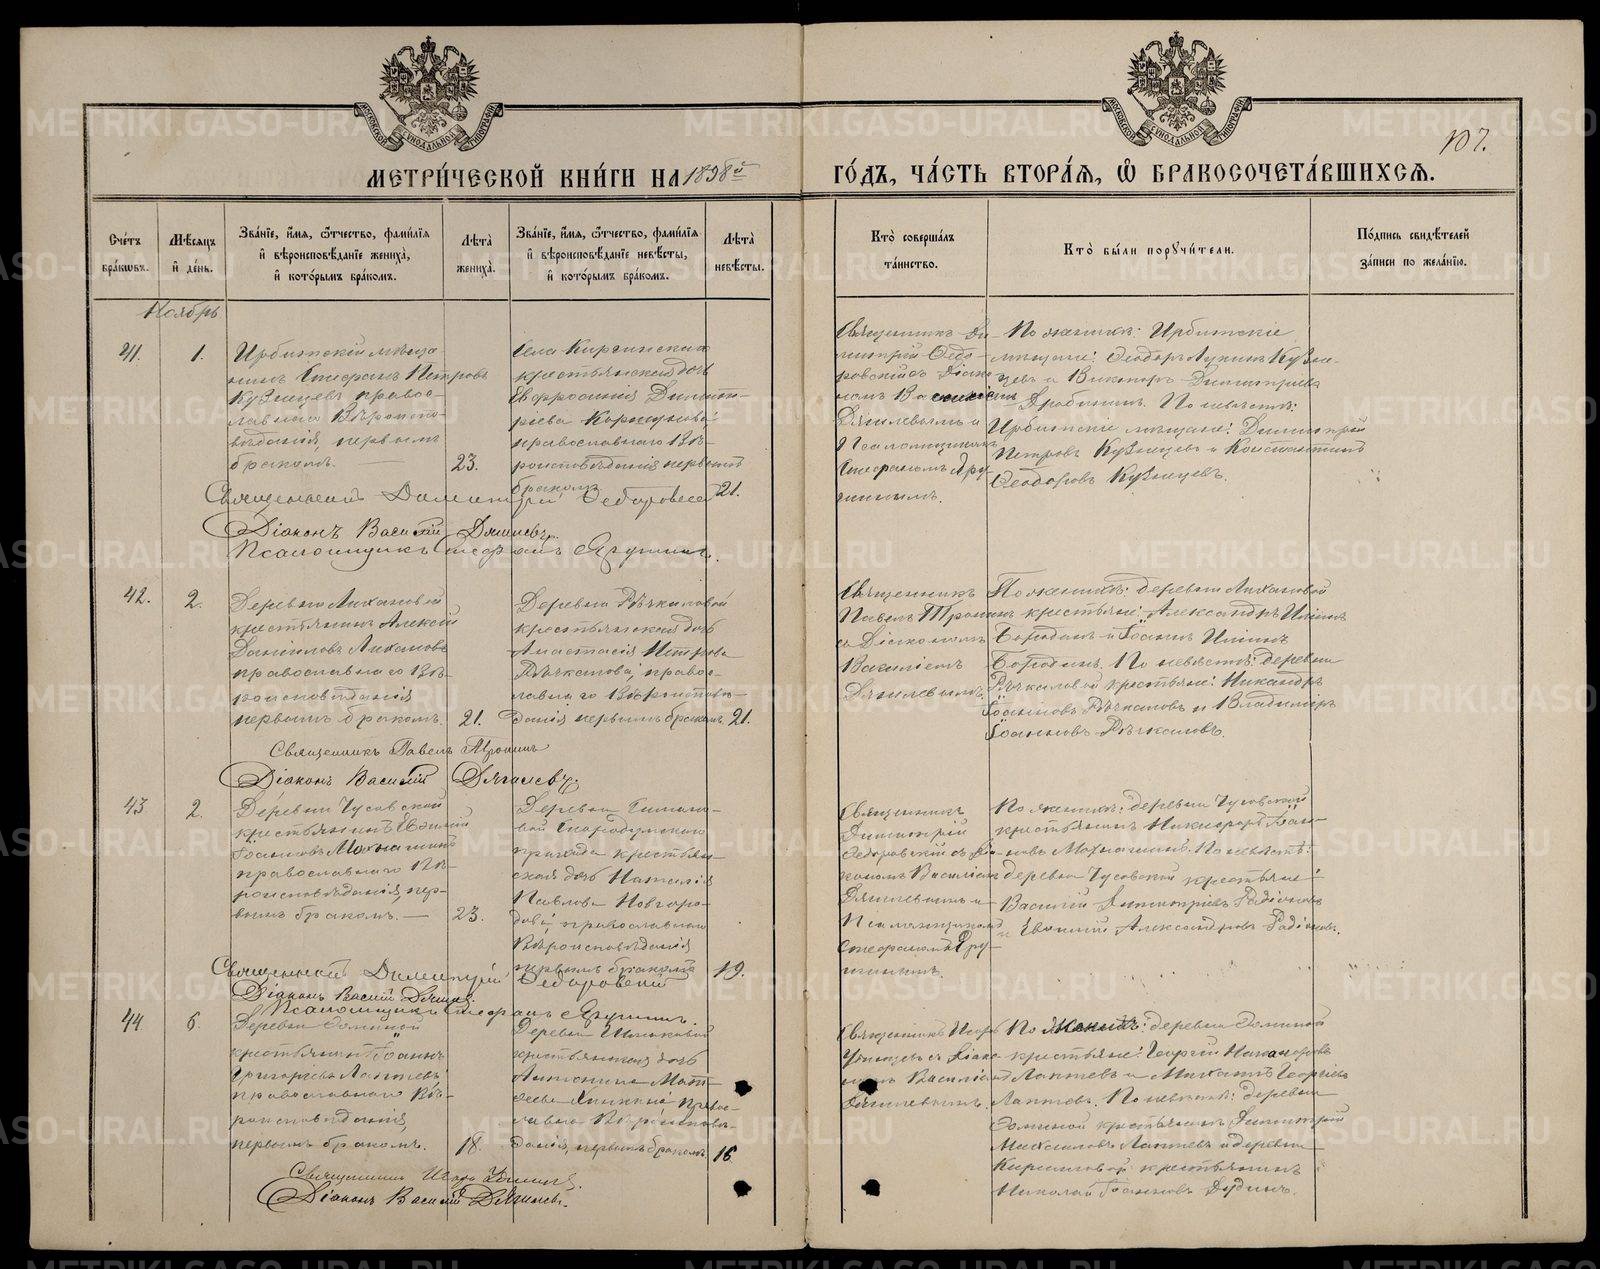 МЕТРИ́ЧЕСКОЙ КНИ́ГИ НА 1898й
ГО́ДЪ, ЧА́СТЬ ВТОРА́Я, Ѽ БРАКОСОЧЕТА́ВШИХСЯ.
107.
Сче́тъ бра́кѡвъ.
Мѣ́сяцъ и҆ де́нь.
Зва́нїе, и҆́мя, ѻ҆́тчество, фами́лїя и҆ вѣроисповѣ́данїе жениха̀, и҆ кото́рымъ бра́комъ.
Лѣ́та жениха̀.
Зва́нїе, и҆́мя, ѻ҆́тчество, фами́лїя и҆ вѣроисповѣ́данїе невѣ́сты, и҆ кото́рымъ бра́комъ.
Лѣ́та невѣ́сты.
Кто̀ соверша́лъ та́инство.
Кто̀ бы́ли порꙋчи́тели.
По́дпись свидѣ́телей за́писи по жела́нїю.
Ноябрь
41.
1.
Ирбитскій мѣща-
нинъ Стефанъ Петровъ
Кузнецовъ правос-
лавнаго Вѣроиспо-
вѣданія, первымъ
бракомъ.
23.
Села Киргинскаго
крестьянская дочь
Евфросинія Димит-
ріева Коршунова,
православнаго Вѣ-
роисповѣданія первымъ
бракомъ
21.
Священникъ Ди-
митрій Ѳедо-
ровскій съ Діако-
номъ Василіемъ
Дягилевымъ и
Псаломщикомъ
Стефаномъ Яру-
шинымъ.
По женихѣ: Ирбитскіе
мѣщане: Ѳеодоръ Лукинъ Кузне-
цовъ и Викторъ Димитріевъ
По невѣстѣ:
Ирбитскіе мѣщане: Димитрій
Петровъ Кузнецовъ и Константинъ
Ѳеодоровъ Кузнецовъ.
Священникъ Димитрій Ѳедоровскій
Діаконъ Василій Дягилевъ.
Псаломщикъ Стефанъ Ярушинъ.
42.
2.
Деревни Лихановой
крестьянинъ Алексій
Даниловъ Лихановъ
православнаго Вѣ-
роисповѣданія
первымъ бракомъ.
21.
Деревни Рѣчкаловой
крестьянская дочь
Анастасія Петрова
Рѣчкалова, правос-
лавнаго Вѣроисповѣ-
данія первымъ бракомъ
21.
Священникъ
Павелъ Тронинъ
съ Діакономъ
Василіемъ
Дягилевымъ.
По женихѣ: деревни Лихановой
крестьяне: Александръ Ильинъ
Бородинъ и Іоаннъ Ильинъ
Бородинъ. По невѣстѣ: деревни
Рѣчкаловой крестьяне: Никандръ
Іоанновъ Рѣчкаловъ и Владиміръ
Іоанновъ Рѣчкаловъ.
Священникъ Павелъ Тронинъ
Діаконъ Василій Дягилевъ.
43
2.
Деревни Чусовской
крестьянинъ Евѳимій
Іоанновъ Мохнашинъ
православнаго Вѣ-
роисповѣданія, пер-
вымъ бракомъ. —
23.
Скородумскаго
прихода крестьян-
ская дочь Наталія
Павлова Новгоро-
дова, православнаго
Вѣроисповѣданія
первымъ бракомъ
19.
Священникъ
Димитрій
Ѳедоровскій съ Діа-
кономъ Василіемъ
Дягилевымъ и
Псаломщикомъ
Стефаномъ Яру-
шинымъ.
По женихѣ: деревни Чусовской
крестьянинъ Никифоръ Іоан-
новъ Мохнашинъ. По невѣстѣ:
деревни Чусовской крестьяне:
Василій Димитріевъ Радіоновъ
и Евѳимій Александровъ Радіоновъ.
Священникъ Димитрій Ѳедоровскій
Діаконъ Василій Дягилевъ.
Псаломщикъ Стефанъ Ярушинъ.
44
6.
Деревни Ѳоминой
крестьянинъ Іоаннъ
Григорьевъ Лаптевъ
православнаго Вѣ-
роисповѣданія,
первымъ бракомъ.
18.
крестьянская дочь
Антонина Мат-
ѳеева правос-
лавнаго Вѣроисповѣ-
данія, первымъ бракомъ
16
Священникъ Игорь
Удинцевъ съ Діако-
номъ Василіемъ
Дягилевымъ.
По женихѣ: деревни Ѳоминой
крестьяне: Георгій Никаноровъ
Лаптевъ и Михаилъ Георгіевъ
Лаптевъ. По невѣстѣ: деревни
Ѳоминой крестьянинъ Димитрій
Лаптевъ и деревни
крестьянинъ
Николай Іоанновъ Дудинъ.
Діаконъ Василій Дягилевъ.
METRIKI.GASO-URAL.RU